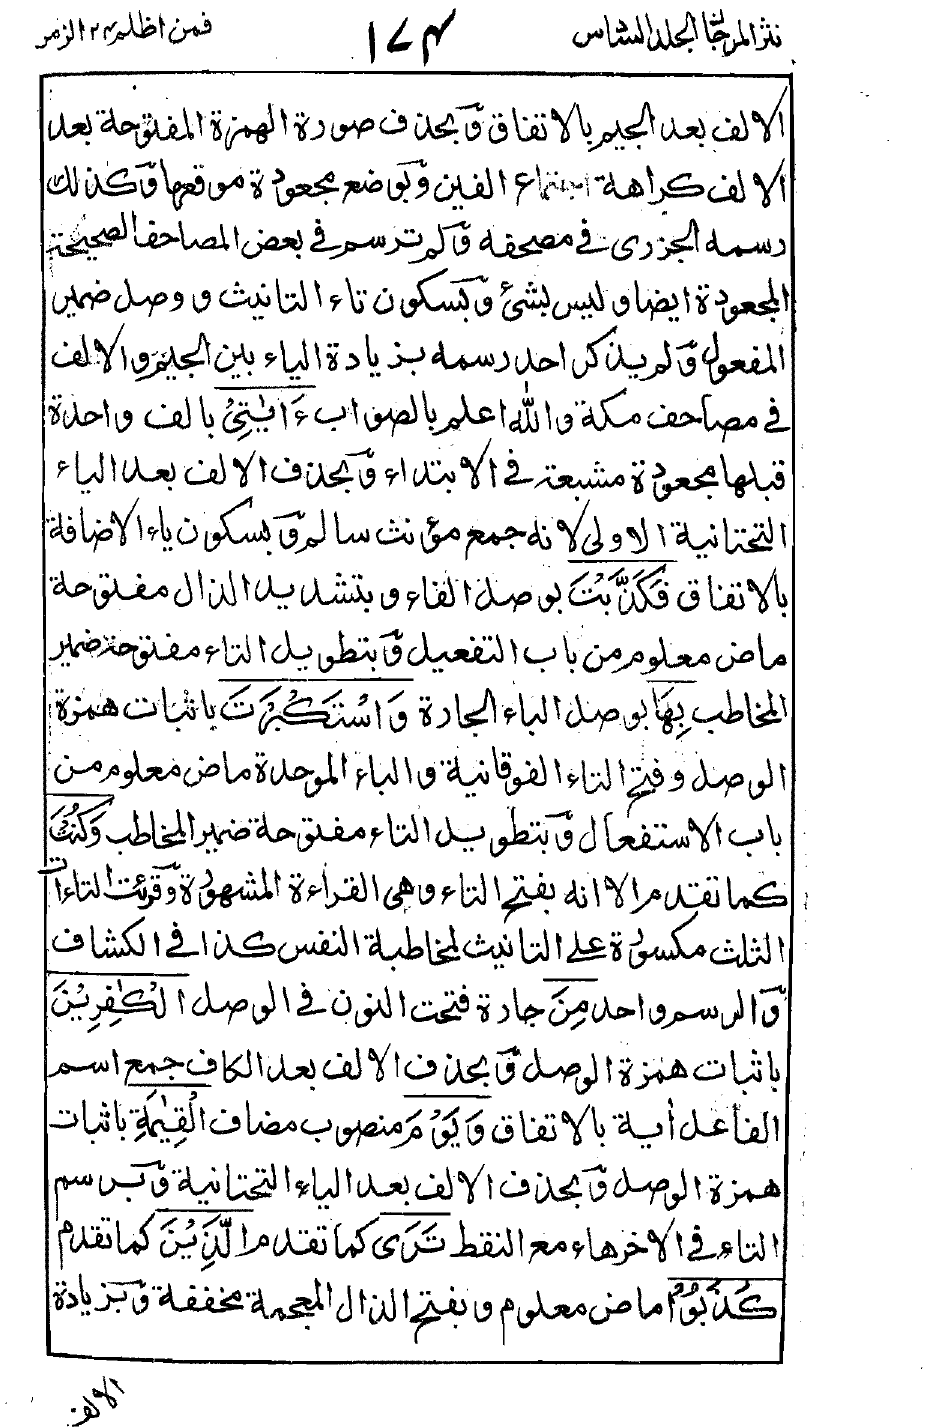 نثر المرجان الجلد السادس
١٧٤
فمن اظلم ٢٤ الزمر
الالف بعد الجيم بالاتفاق وَبحذف صورة الهمزة المفتوحة بعد
الالف كراهة اجتماع الفين وَبوضع مجعودة موقعها وَكذلك
رسمه الجزرى فى مصحفه وَلم ترسم فى بعض المصاحف الصحيحة
المجعودة ايضا وليس بشئ وَبسكون تاء التانيث و وصل ضمير
المفعول وَلم يذكر احد رسمه بزيادة الياء بين الجيم والالف
فى مصاحف مكة والله اعلم بالصواب ءَايٰتِىْ بالف واحدة
قبلها مجعودة مشبعة فى الابتداء وَبحذف الالف بعد الياء
التحتانية الاولى لانه جمع مؤنث سالم وَبسكون ياء الاضافة
بالاتفاق فَكَذَّبْتَ بوصل الفاء وبتشديد الذال مفتوحة
ماض معلوم من باب التفعيل وَبتطويل التاء مفتوحة ضمير
المخاطب بِهَا بوصل الباء الجارة وَاسْتَكْبَرْتَ باثبات همزة
الوصل وفتح التاء الفوقانية والباء الموحدة ماض معلوم من
باب الاستفعال وَبتطويل التاء مفتوحة ضمير المخاطب وَكُنْتَ
كما تقدم الا انه بفتح التاء وهى القراءة المشهورة وَقرئت التاءات
الثلث مكسورة على التانيث لمخاطبة النفس كذا فى الكشاف
وَالرسم واحد مِنَ جارة فتحت النون فى الوصل الْكٰفِرِيْنَ
باثبات همزة الوصل وَبحذف الالف بعد الكاف جمع اسم
الفاعل أية بالاتفاق وَيَوْمَ منصوب مضاف الْقِيٰمَةِ باثبات
همزة الوصل وَبحذف الالف بعد الياء التحتانية وَبرسم
التاء فى الاخر هاء مع النقط تَرَى كما تقدم الَّذِيْنَ كما تقدم
كَذَبُوْا ماض معلوم وبفتح الذال المعجمة مخففة وَبزيادة
الالف